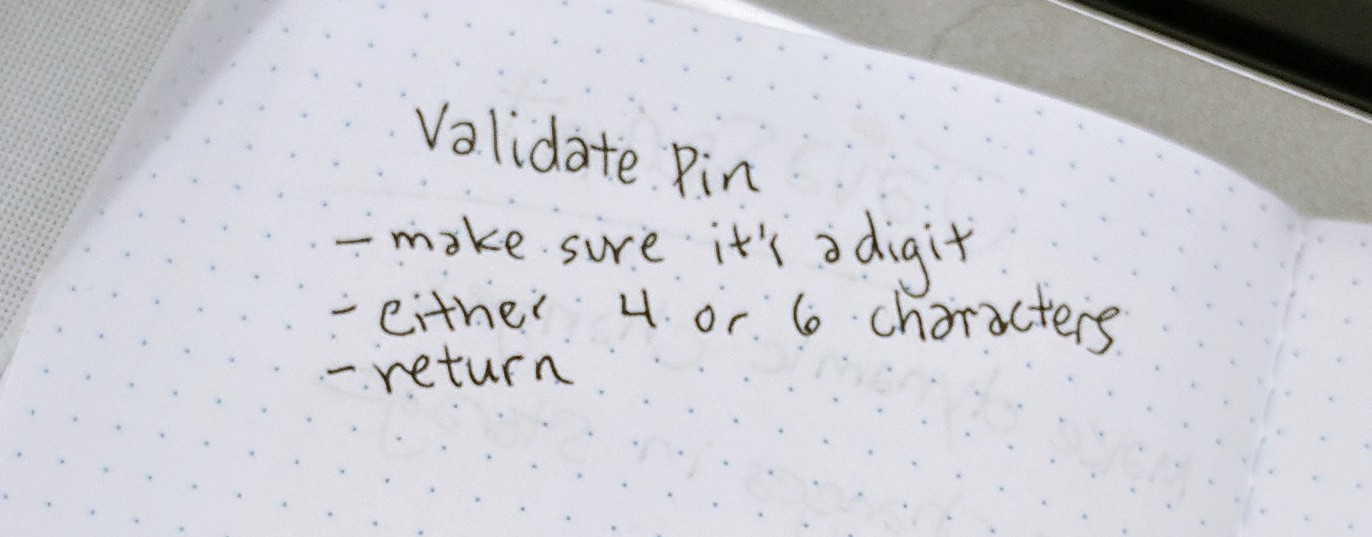 Validate Pin
- make sure it's a digit
- either 4 or 6 characters
- return